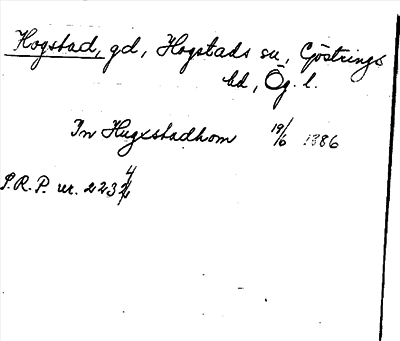 Hogstad, gd, Hogstads sn, Göstrings
hd, Ög. l.
In Hugxstadhom 19/6 1386
S.R.P. nr. 2232